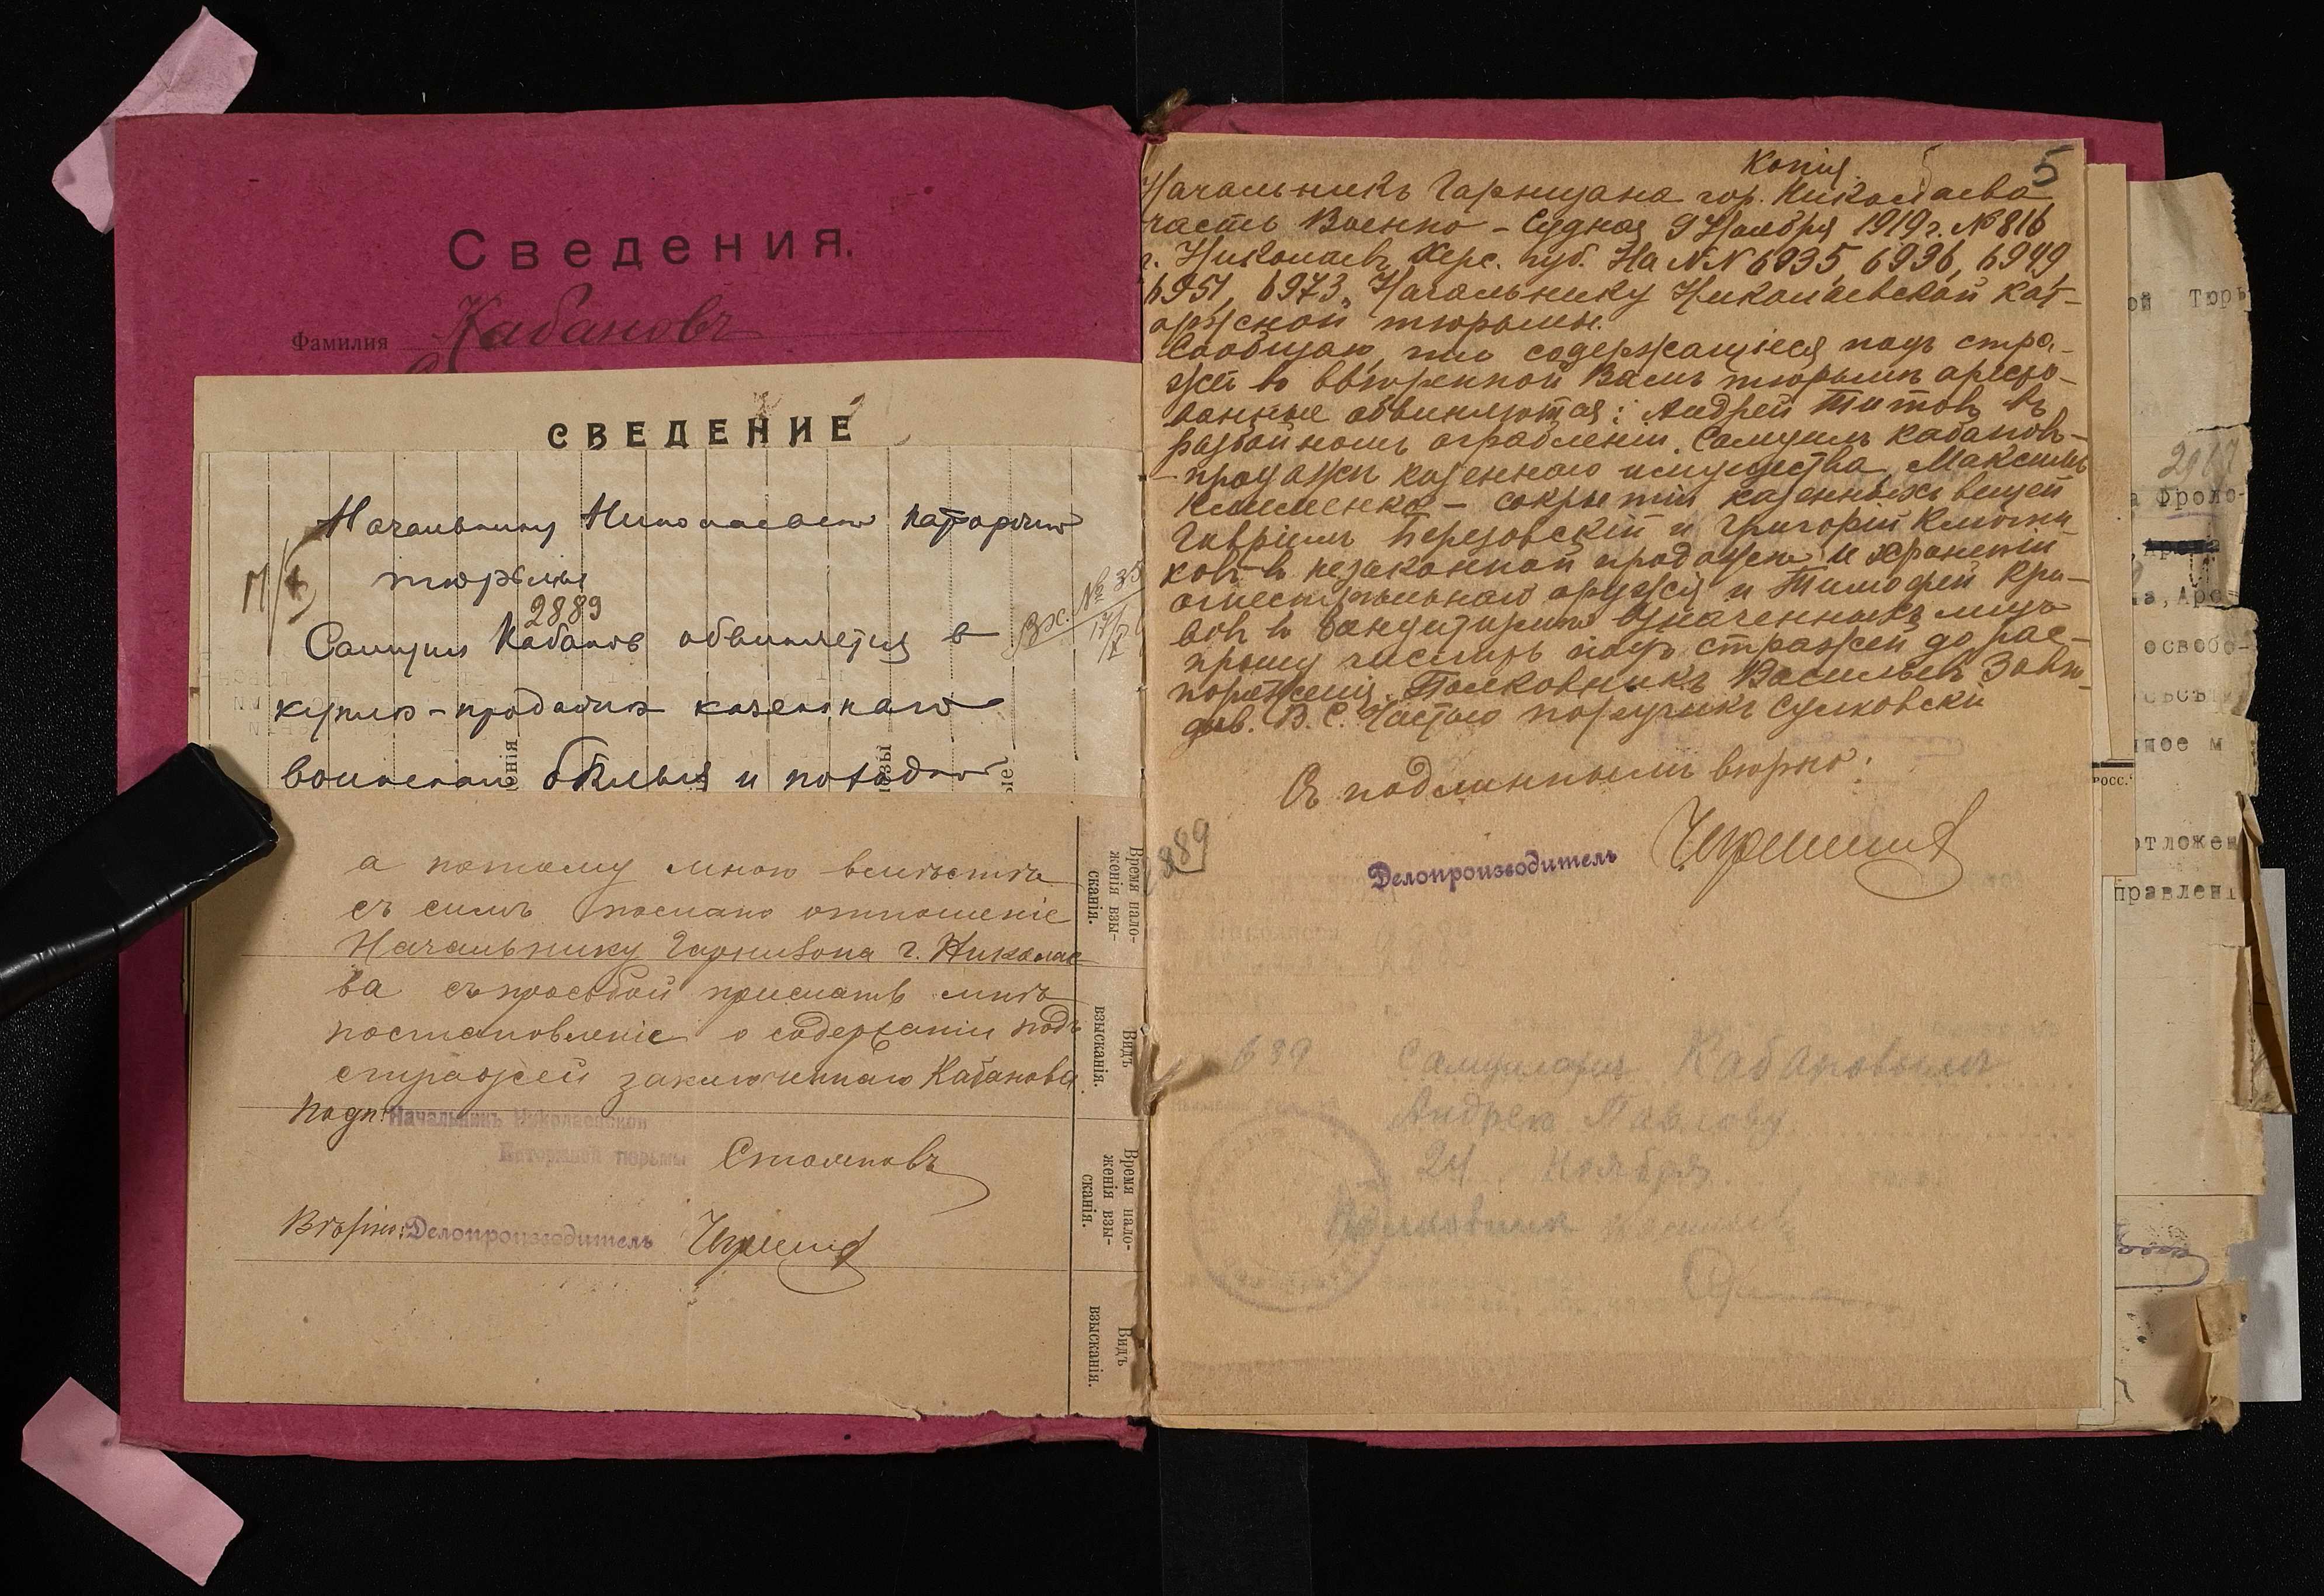 Сведения.
Фамилия Кабановъ
СВЕДЕНИЕ
Начальнику Николаевской каторжной
тюрьмы
2889
Самуил Кабанов обвиняется в
купле-продаже казеннаго
воинскаго белья и
Вх. № 35
а потому мною вместе
съ симъ послано отношеніе
Начальнику Гарнизона г. Николае
ва съ просьбой прислать мнѣ
постановленіе о содержаніи подъ
стражей заключеннаго Кабанова
Подп. Начальникъ Николаевской
Каторжной тюрьмы Столповъ
Вѣрно: Делопроизводитель
Время нало-
женія взы-
сканія.
Видъ
взысканія.
Время нало-
женія взы-
сканія.
Видъ
взысканія.
Копія 5
Начальникъ Гарнизона гор. Николаева
часть Военно-Судная 9 Ноября 1919 г. № 816
г. Николаевъ Херс. губ. На NN 6935, 6936, 6949,
6951, 6973. Начальнику Николаевской кат-
оржной тюрьмы.
Сообщаю, что содержащіеся подъ стра-
жей во ввѣренной Вамъ тюрьмѣ аресто-
ванные обвиняются: Андрей Титовъ въ
разбойномъ ограбленіи, Самуилъ Кабановъ-
- продажѣ казеннаго имущества, Максимъ
Клименко - сокрытіи казенныхъ вещей
Гавріилъ Березовскій и Григорій Клюгин-
ковъ въ незаконной продаже и храненіи
огнестрѣльнаго оружія и Тимофей Кри-
вой в бандитизмѣ означенныхъ лицъ
прошу числить подъ стражей до рас-
поряженія. Полковникъ Васильевъ Завѣ-
дыв. В. С. Частью поручикъ Сулковски
Съ подлиннымъ вѣрно:
Делопроизводитель
889
689 Самуиломъ Кабановымъ
Андрею Павлову
24 Ноября
ой Тюрь
а Фроло-
а, Арс
освобо-
ное м
РОСС.
отложен
правлені